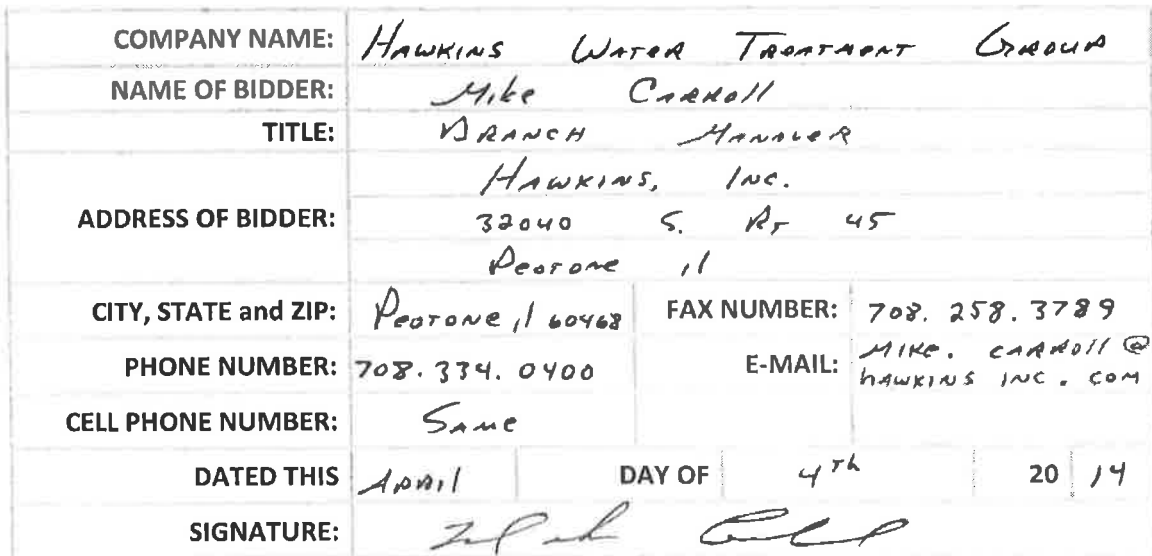 COMPANY NAME: HAWKINS WATER TREATMENT GROUP
NAME OF BIDDER: Mike CARROll
TITLE: BRANCH MANAGER
HAWKINS, INC.
ADDRESS OF BIDDER: 32040 S. RT 45
PEOTONE Il
CITY, STATE and ZIP: PEOTONE, Il 60468 FAX NUMBER: 708. 258. 3789
PHONE NUMBER: 708. 334. 0400 E-MAIL: MIKE. CARROll @
hAWKINS INC. COM
CELL PHONE NUMBER: SAME
DATED THIS APRIl DAY OF 4Th 20 14
SIGNATURE: